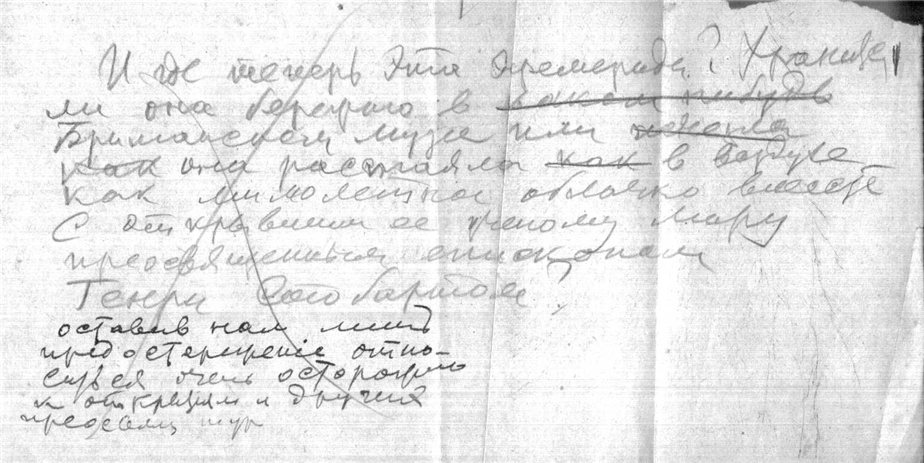 И где теперь эта эфемерида? Хранится
ли она бережно в каком нибудь
Британском музее или исчезла
как она растаяла как в воздухе
как мимолетное облачко вместе
с открывшим ее ученому миру
преосвященным епископом
Генри
оставив нам лишь
предостережение отно-
ситься очень осторожно
к открытиям и других
преосвящ